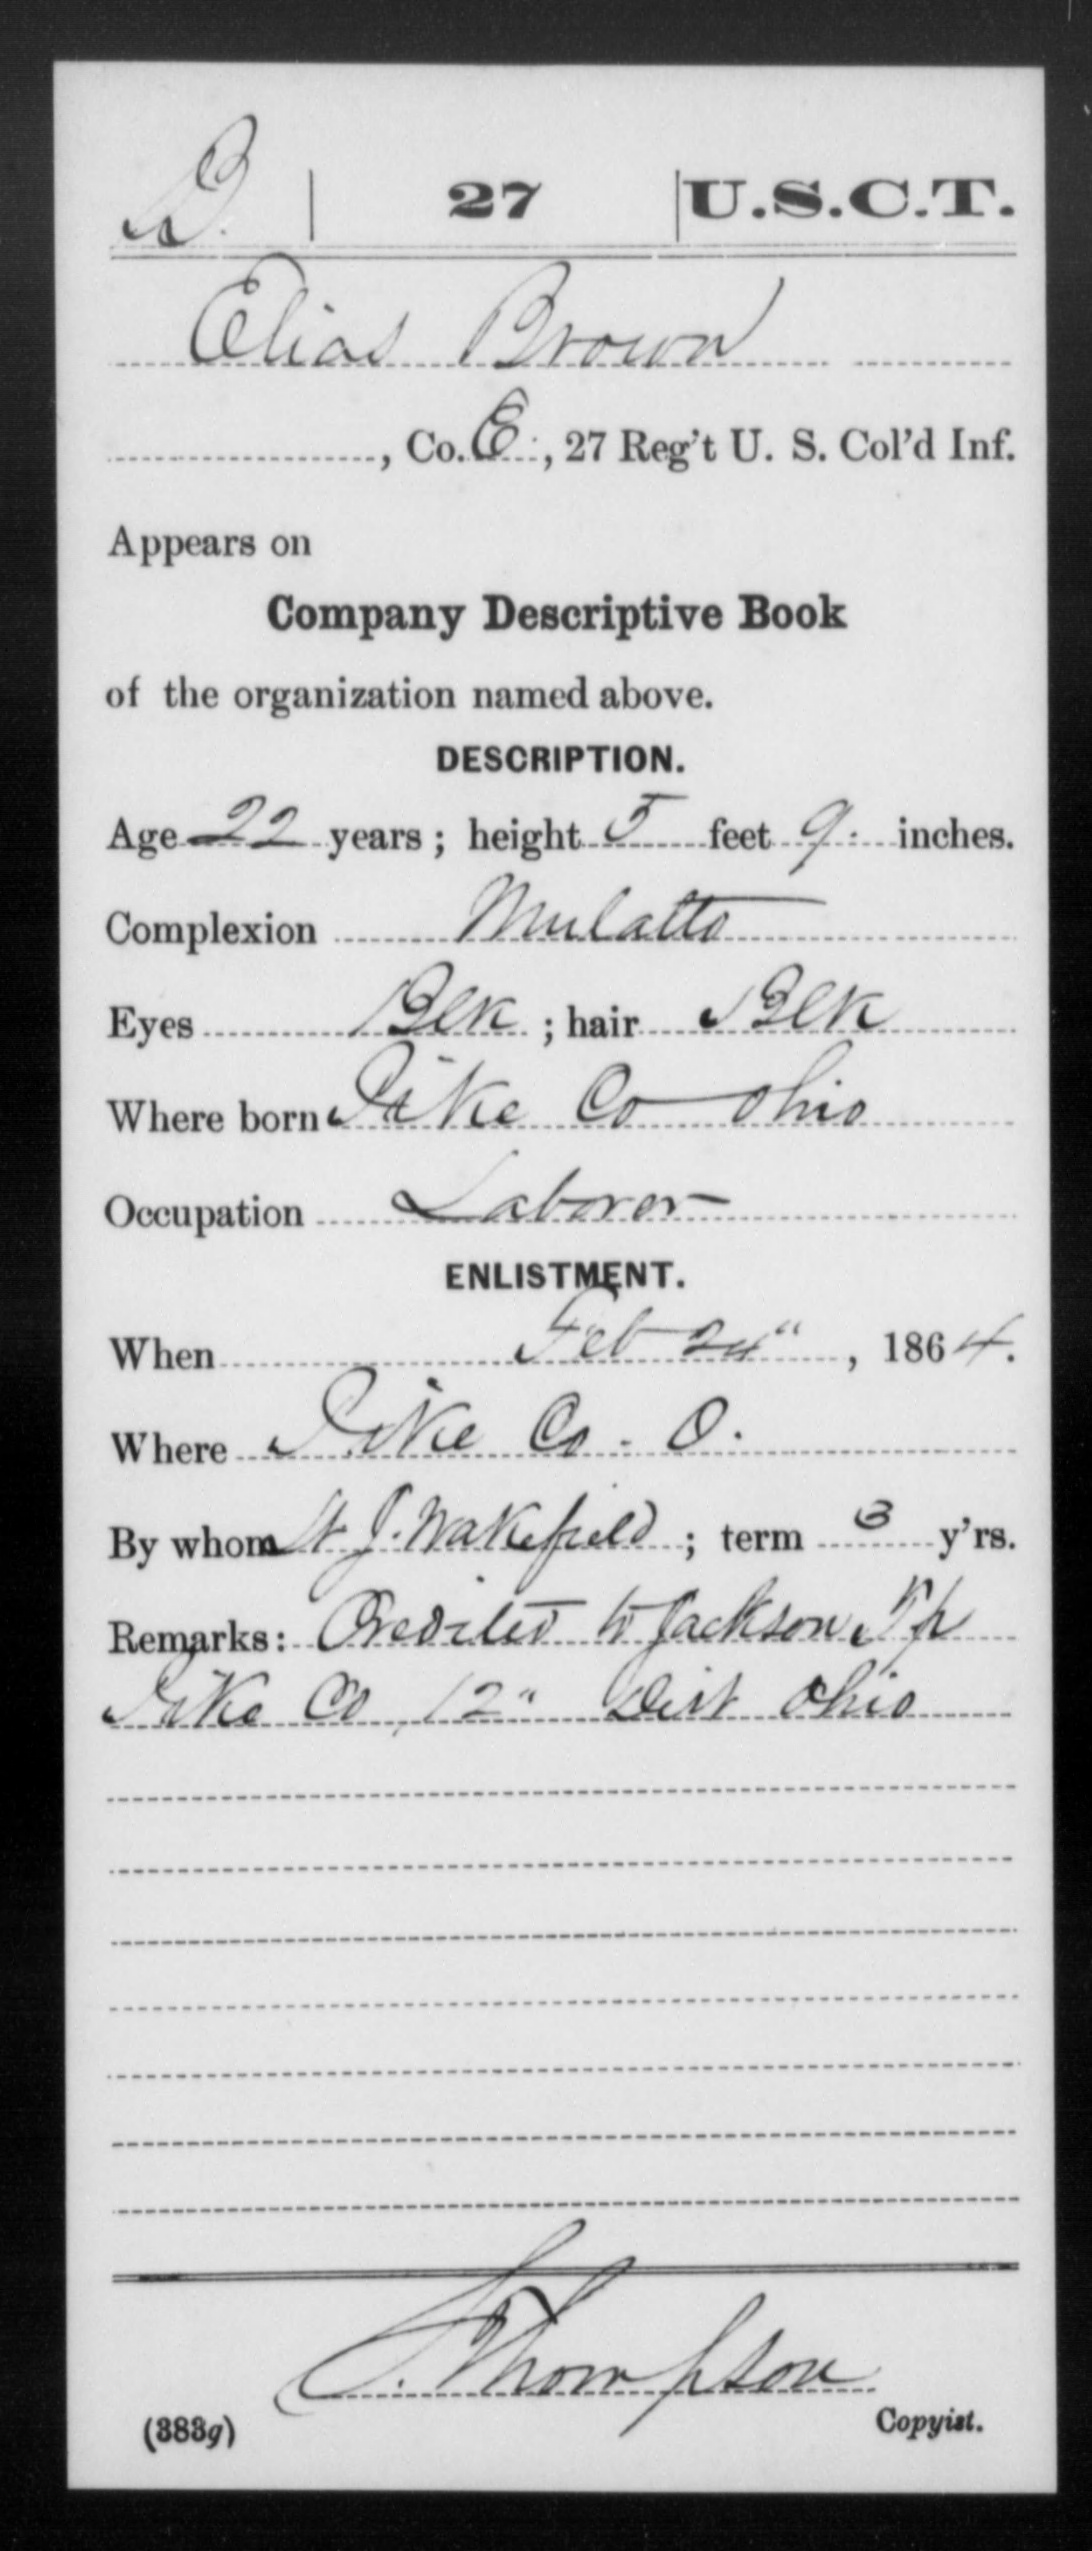 B. | 27 | U.S.C.T.
Elias Brown
, Co. E , 27 Reg't U. S. Col'd Inf.
Appears on
Company Descriptive Book
of the organization named above.
DESCRIPTION.
Age 22 years; height 5 feet 9 inches.
Complexion Mulatto
Eyes Blk ; hair Blk
Where born Pike Co Ohio
Occupation Laborer
ENLISTMENT.
When Feb 24" , 1864.
Where Pike Co. O.
By whom Lt J. Wakefield ; term 3 y'rs.
Remarks: Credited to Jackson Tp
Pike Co, 12" Dist Ohio
Thompson
(383g) Copyist.